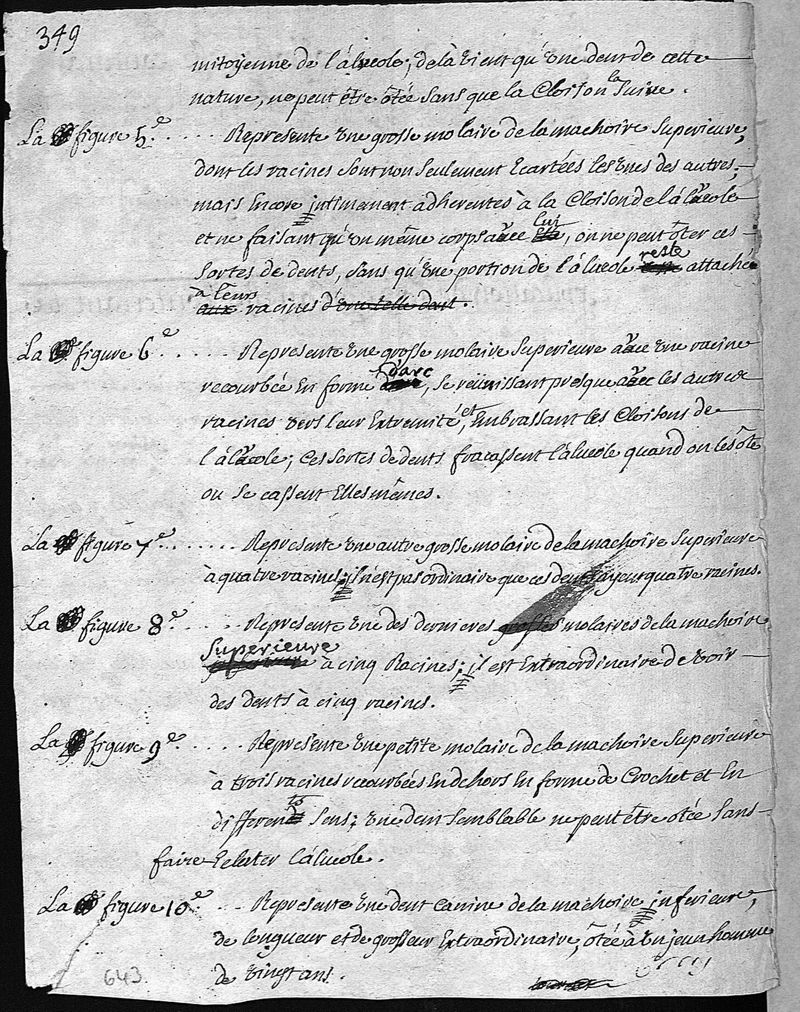 349
mitoyenne de l'álveole; delà vient qu'une dent de cette
nature, ne peut être ôtée sans que la Cloison la suive.
La figure 5.e ..... Represente une grosse molaire de la machoire superieure,
dont les racines sont non seulement Ecartées les unes des autres;
mais Encore intimement adherentes à la Cloison de l'álveole
et ne faisant qu'un même corps avec lui, on ne peut ôter ces
sortes de dents, sans qu'une portion de l'álveole reste attaché
à leurs
aux racines d'une telle dent.
La figure 6.e ...... Represente une grosse molaire superieure avec une racine
recourbée En forme d'arc, se réünissant presque avec les autres
racines vers leur Extremité, et Embrassant les Cloisons de
l'álveole; Ces sortes de dents fracassent l'álveole quand on les ôte
ou se cassent Elles mêmes.
La figure 7.e ....... Represente une autre grosse molaire de la machoire superieure
à quatre racines; il n'est pas ordinaire que ces dents ayent quatre racines.
La figure 8.e ..... Represente une des dernieres grosses molaires de la machoire
Superieure
à cinq Racines; il est Extraordinaire de voir
des dents à cinq racines.
La figure 9.e ..... Represente une petite molaire de la machoire superieure
à trois racines recourbées En dehors En forme de Crochet et En
differents sens; une dent semblable ne peut être otée sans
faire Eclater l'álveole.
La figure 10.e ... Represente une dent canine de la machoire inferieure,
de longueur et de grosseur Extraordinaire, ôtée à un jeun homme
de vingt ans.
643